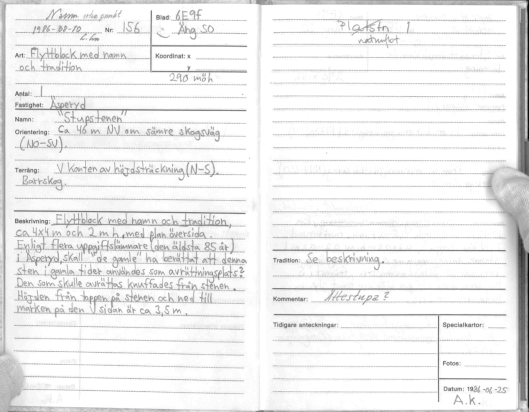 Namn inte pamkt
1986-08-10
Nr: 156
Blad: 6E9f
Äng. SO
Art: Flyttblock med namn
och tradition
Koordinat: x
y
290 möh
Antal: 1
Fastighet: Äsperyd
Namn: "Stupstenen"
Orientering: Ca 40 m NV om sämre skogsväg
(NO-SV).
Terräng: V Kanten av höjdsträckning (N-S).
Barrskog.
Beskrivning: Flyttblock med namn och tradition,
ca 4x4 m och 2 m h, med plan översida.
Enligt flera uppgiftslämnare (den äldsta 85 år)
i Äsperyd, skall "de gamle" ha berättat att denna
sten i gamla tider användes som avrättningsplats?
Den som skulle avrättas knuffades från stenen.
Höjden från toppen på stenen och ned till
marken på den V sidan är ca 3,5 m.
Platstn 1
naturföt
Tradition: Se beskrivning.
Kommentar: Ättestupa?
Tidigare anteckningar:
Specialkartor:
Fotos:
Datum: 1986-06-25
A.k.